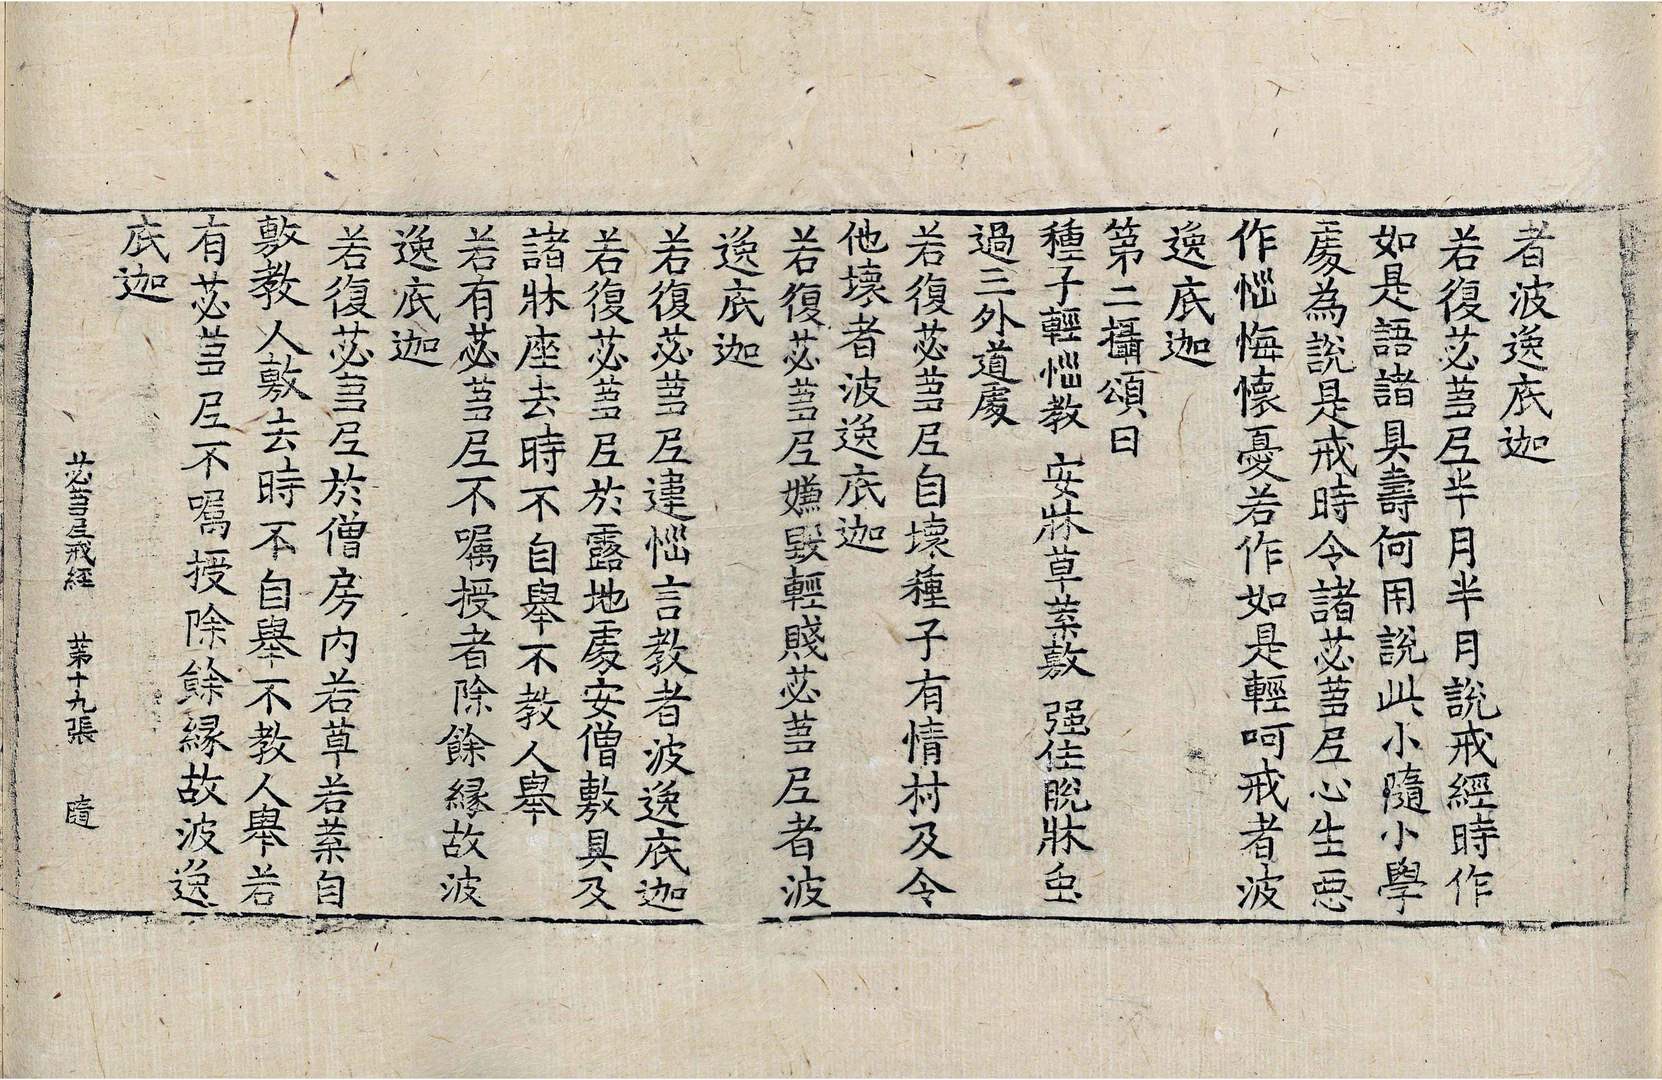 者波逸底迦
若復苾芻尼半月半月說戒經時作
如是語諸具壽何用說此小隨小學
處為說是戒時令諸苾芻尼心生惡
作惱悔懷憂若作如是輕呵戒者波
逸底迦
第二攝頌曰
種子輕惱教 安牀草葉敷 强住脫牀虫
過三外道處
若復苾芻尼自壞種子有情村及令
他壞者波逸底迦
若復苾芻尼嫌毀輕賤苾芻尼者波
逸底迦
若復苾芻尼違惱言教者波逸底迦
若復苾芻尼於露地處安僧敷具及
諸牀座去時不自舉不教人舉
若有苾芻尼不囑授者除餘緣故波
逸底迦
若復苾芻尼於僧房內若草若葉自
敷教人敷去時不自舉不教人舉若
有苾芻尼不囑授除餘緣故波逸
底迦
苾芻尼戒經 第十九張 隨